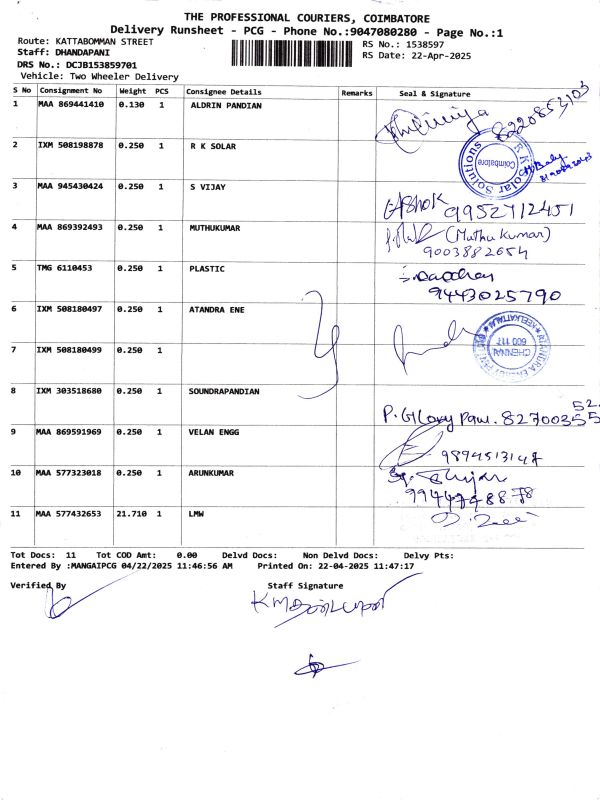 THE PROFESSIONAL COURIERS, COIMBATORE
Delivery Runsheet - PCG - Phone No.:9047080280 - Page No.:1
Route: KATTABOMMAN STREET
RS No.: 1538597
Staff: DHANDAPANI
RS Date: 22-Apr-2025
DRS No.: DCJB153859701
Vehicle: Two Wheeler Delivery
S No Consignment No Weight PCS Consignee Details Remarks Seal & Signature
1 MAA 869441410 0.130 1 ALDRIN PANDIAN
8220853103
2 IXM 508198878 0.250 1 R K SOLAR
R K Solar Solutions
Coimbatore
3 MAA 945430424 0.250 1 S VIJAY
Ashok 9952712451
4 MAA 869392493 0.250 1 MUTHUKUMAR
(Muthu Kumar)
9003882654
5 TMG 6110453 0.250 1 PLASTIC
9443025790
6 IXM 508180497 0.250 1 ATANDRA ENE
CHENNAI
600 117
7 IXM 508180499 0.250 1
8 IXM 303518680 0.250 1 SOUNDRAPANDIAN
9 MAA 869591969 0.250 1 VELAN ENGG
10 MAA 577323018 0.250 1 ARUNKUMAR
11 MAA 577432653 21.710 1 LMW
Tot Docs: 11 Tot COD Amt: 0.00 Delvd Docs: Non Delvd Docs: Delvy Pts:
Entered By :MANGAIPCG 04/22/2025 11:46:56 AM Printed On: 22-04-2025 11:47:17
Verified By Staff Signature